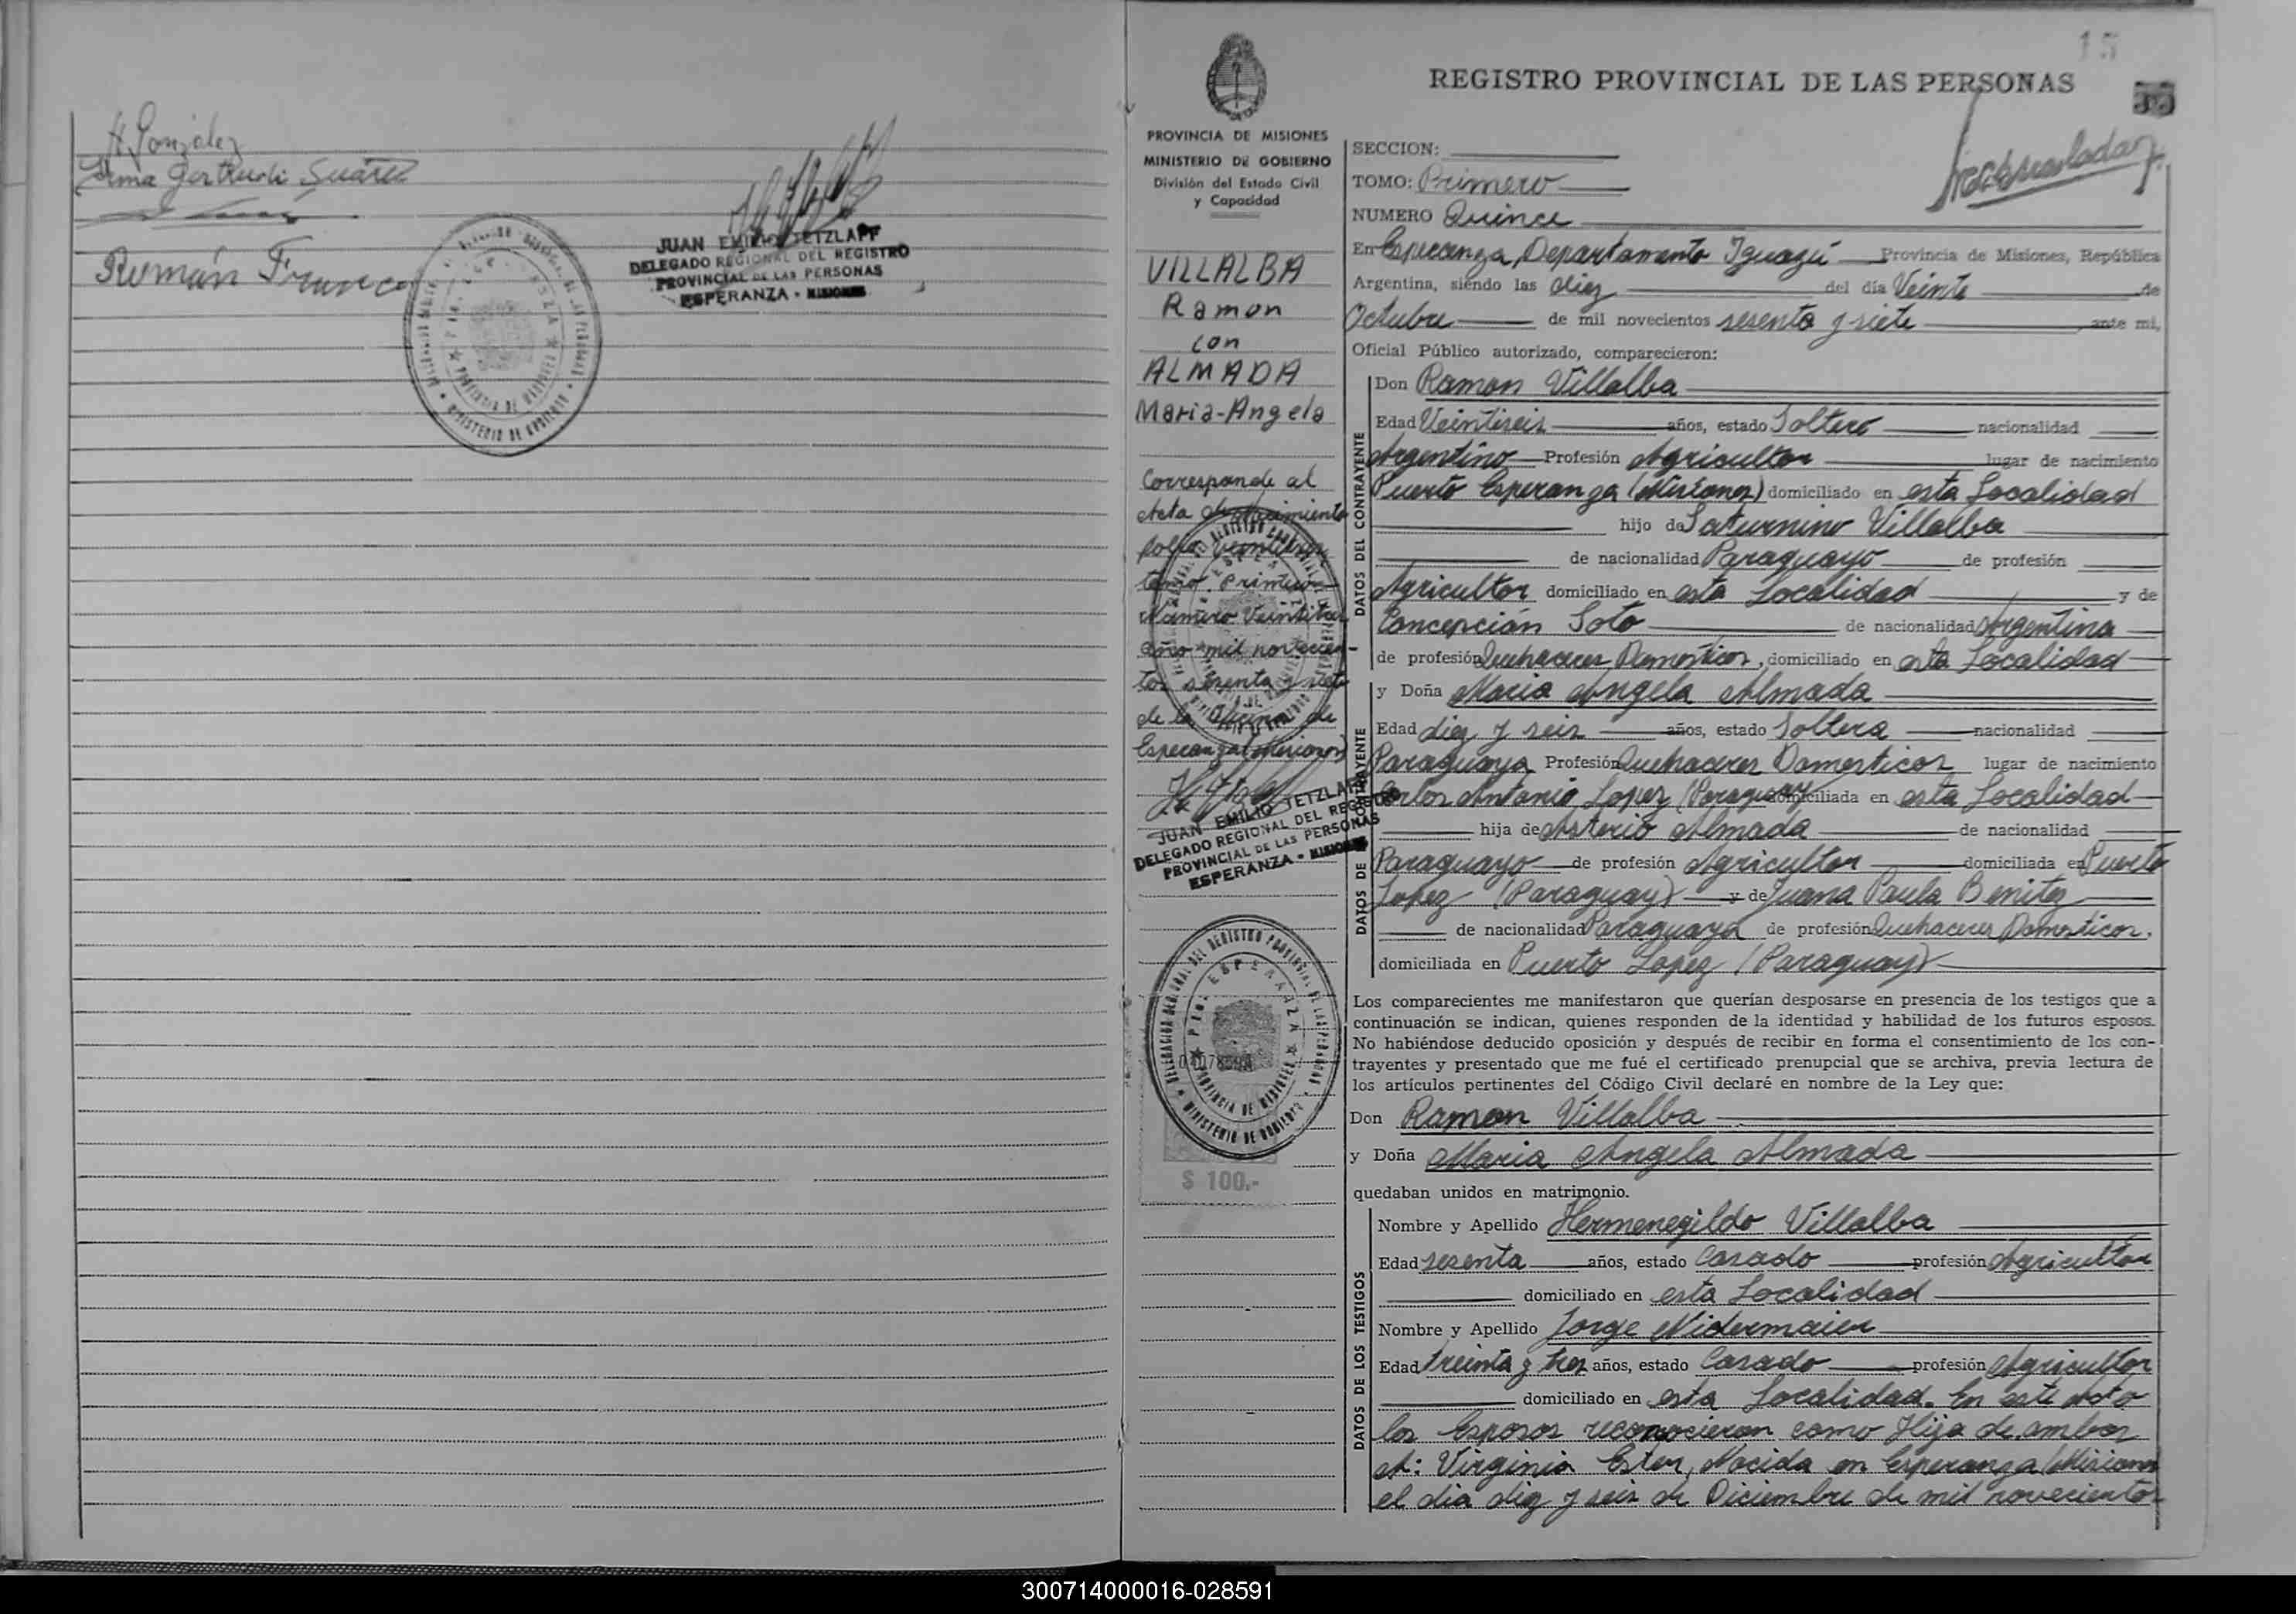 H. González
Irma Gertrudi Suárez
Román Franco
JUAN EMILIO TETZLAFF
DELEGADO REGIONAL DEL REGISTRO
PROVINCIAL DE LAS PERSONAS
ESPERANZA - MISIONES
15
REGISTRO PROVINCIAL DE LAS PERSONAS
PROVINCIA DE MISIONES
MINISTERIO DE GOBIERNO
División del Estado Civil
y Capacidad
VILLALBA
Ramon
con
ALMADA
Maria-Angela
Corresponde al
Acta de nacimiento
folio
tomo primero
Número Veintitres
año mil novecien-
tos sesenta y siete
de la Oficina de
Esperanza (Misiones)
JUAN EMILIO TETZLAFF
DELEGADO REGIONAL DEL REGISTRO
PROVINCIAL DE LAS PERSONAS
ESPERANZA - MISIONES
DELEGACION REGIONAL DEL REGISTRO PROVINCIAL DE LAS PERSONAS
PTO. ESPERANZA
PROVINCIA DE MISIONES
MINISTERIO DE GOBIERNO
$ 100.-
SECCION:
TOMO: Primero
NUMERO Quince
En Esperanza, Departamento Iguazú Provincia de Misiones, República
Argentina, siendo las diez del día Veinte de
Octubre de mil novecientos sesenta y siete ante mi,
Oficial Público autorizado, comparecieron:
DATOS DEL CONTRAYENTE
Don Ramon Villalba
Edad Veintiseis años, estado Soltero nacionalidad
Argentino Profesión Agricultor lugar de nacimiento
Puerto Esperanza (Misiones) domiciliado en esta Localidad
hijo de Saturnino Villalba
de nacionalidad Paraguayo de profesión
Agricultor domiciliado en esta Localidad y de
Concepción Soto de nacionalidad Argentina
de profesión Quehaceres Domesticos, domiciliado en esta Localidad
DATOS DE CONTRAYENTE
y Doña Maria Angela Almada
Edad diez y seis años, estado Soltera nacionalidad
Paraguaya Profesión Quehaceres Domesticos lugar de nacimiento
Carlos Antonio Lopez (Paraguay) domiciliada en esta Localidad
hija de Asterio Almada de nacionalidad
Paraguayo de profesión Agricultor domiciliada en Puerto
Lopez (Paraguay) y de Juana Paula Benitez
de nacionalidad Paraguaya de profesión Quehaceres Domesticos.
domiciliada en Puerto Lopez (Paraguay)
Los comparecientes me manifestaron que querían desposarse en presencia de los testigos que a
continuación se indican, quienes responden de la identidad y habilidad de los futuros esposos.
No habiéndose deducido oposición y después de recibir en forma el consentimiento de los con-
trayentes y presentado que me fué el certificado prenupcial que se archiva, previa lectura de
los artículos pertinentes del Código Civil declaré en nombre de la Ley que:
Don Ramon Villalba
y Doña Maria Angela Almada
quedaban unidos en matrimonio.
DATOS DE LOS TESTIGOS
Nombre y Apellido Hermenegildo Villalba
Edad sesenta años, estado Casado profesión Agricultor
domiciliado en esta Localidad
Nombre y Apellido Jorge Nidermaier
Edad treinta y tres años, estado Casado profesión Agricultor
domiciliado en esta Localidad. En este Acto
los Esposos reconocieron como Hija de ambos
A: Virginia Ester, Nacida en Esperanza (Misiones
el dia diez y seis de Diciembre de mil novecientos
300714000016-028591